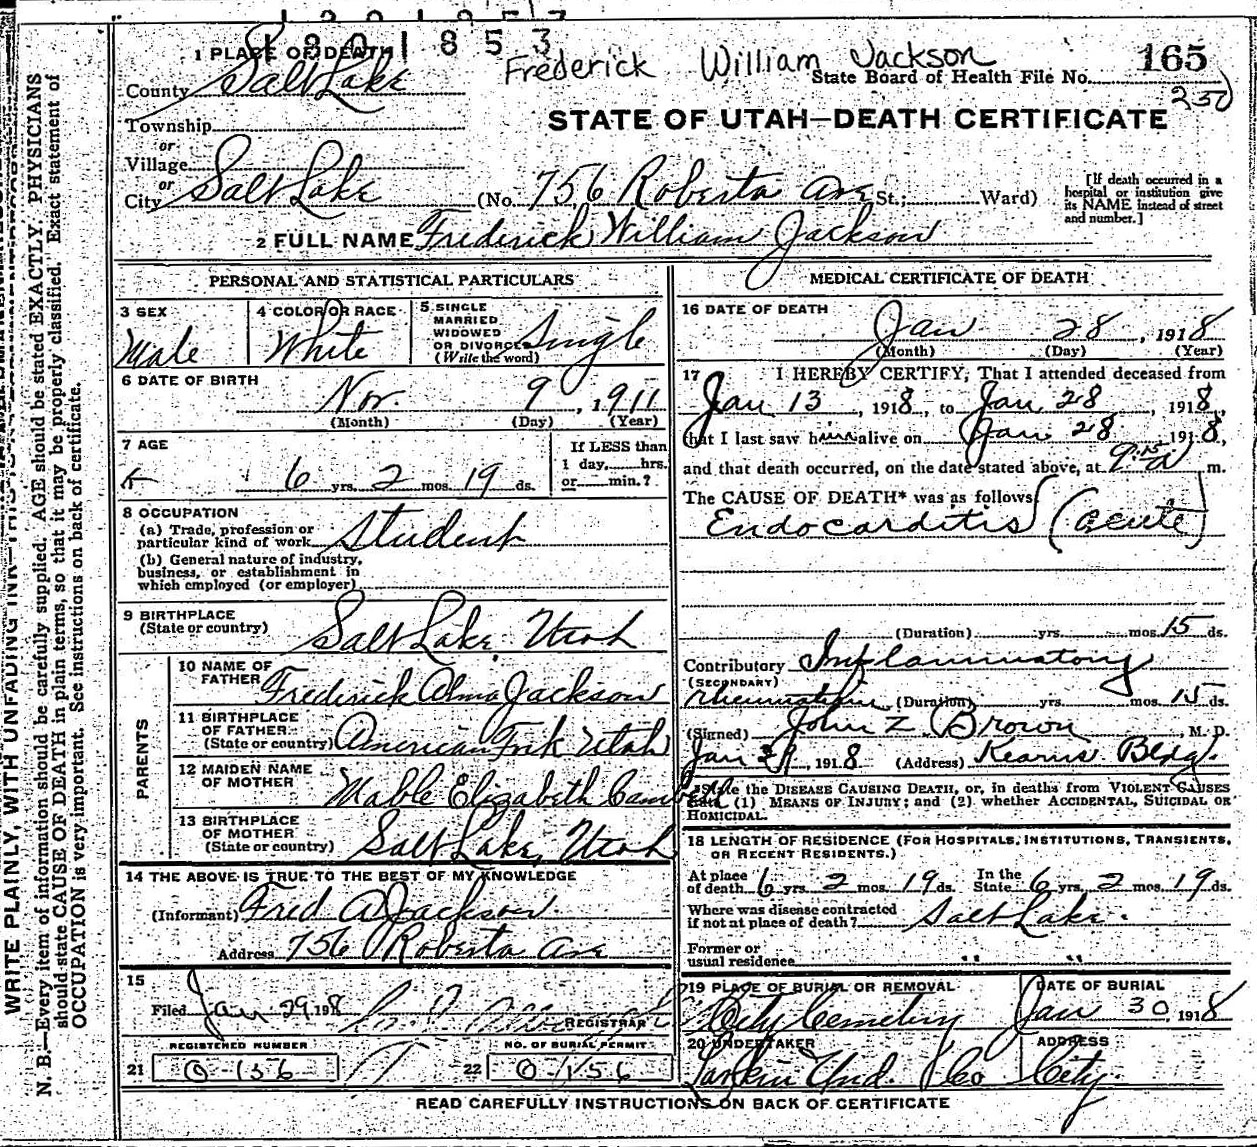 1801853
Frederick William Jackson
165
State Board of Health File No.
250
1 PLACE OF DEATH
County Salt Lake
STATE OF UTAH—DEATH CERTIFICATE
Township
or
Village
or
City Salt Lake (No. 756 Roberta Ave St.; Ward)
[If death occurred in a hospital or institution give its NAME instead of street and number.]
2 FULL NAME Frederick William Jackson
PERSONAL AND STATISTICAL PARTICULARS
3 SEX
Male
4 COLOR OR RACE
White
5 SINGLE
MARRIED
WIDOWED
OR DIVORCED
(Write the word)
Single
6 DATE OF BIRTH
Nov. 9, 1911
(Month) (Day) (Year)
7 AGE
6 yrs. 2 mos. 19 ds.
If LESS than
1 day, hrs.
or min.?
8 OCCUPATION
(a) Trade, profession or
particular kind of work Student
(b) General nature of industry,
business, or establishment in
which employed (or employer)
9 BIRTHPLACE
(State or country) Salt Lake, Utah
PARENTS
10 NAME OF
FATHER Frederick Alma Jackson
11 BIRTHPLACE
OF FATHER
(State or country) American Fork Utah
12 MAIDEN NAME
OF MOTHER Mable Elizabeth
13 BIRTHPLACE
OF MOTHER
(State or country) Salt Lake, Utah
14 THE ABOVE IS TRUE TO THE BEST OF MY KNOWLEDGE
(Informant) Fred A Jackson
Address 756 Roberta Ave
15
Filed Jan 29, 1918
REGISTRAR
REGISTERED NUMBER
21 0-156
NO. OF BURIAL PERMIT
22 0-156
MEDICAL CERTIFICATE OF DEATH
16 DATE OF DEATH
Jan 28, 1918
(Month) (Day) (Year)
17 I HEREBY CERTIFY, That I attended deceased from
Jan 13, 1918, to Jan 28, 1918,
that I last saw him alive on Jan 28 1918,
and that death occurred, on the date stated above, at 9:15 a m.
The CAUSE OF DEATH* was as follows:
Endocarditis (acute)
(Duration) yrs. mos. 15 ds.
Contributory Inflammatory
(SECONDARY)
rheumatism (Duration) yrs. mos. 15 ds.
(Signed) John Z Brown, M. D.
Jan 29, 1918 (Address) Kearns Bldg.
*State the DISEASE CAUSING DEATH, or, in deaths from VIOLENT CAUSES
state (1) MEANS OF INJURY; and (2) whether ACCIDENTAL, SUICIDAL OR
HOMICIDAL.
18 LENGTH OF RESIDENCE (FOR HOSPITALS, INSTITUTIONS, TRANSIENTS,
OR RECENT RESIDENTS.)
At place
of death 6 yrs. 2 mos. 19 ds. In the State 6 yrs. 2 mos. 19 ds.
Where was disease contracted
if not at place of death? Salt Lake.
Former or
usual residence " "
19 PLACE OF BURIAL OR REMOVAL
City Cemetery
DATE OF BURIAL
Jan 30, 1918
20 UNDERTAKER
Larkin Und. Co
ADDRESS
City.
READ CAREFULLY INSTRUCTIONS ON BACK OF CERTIFICATE
WRITE PLAINLY, WITH UNFADING INK—THIS IS A PERMANENT RECORD
N. B.—Every item of information should be carefully supplied. AGE should be stated EXACTLY. PHYSICIANS
should state CAUSE OF DEATH in plain terms, so that it may be properly classified. Exact statement of
OCCUPATION is very important. See instructions on back of certificate.